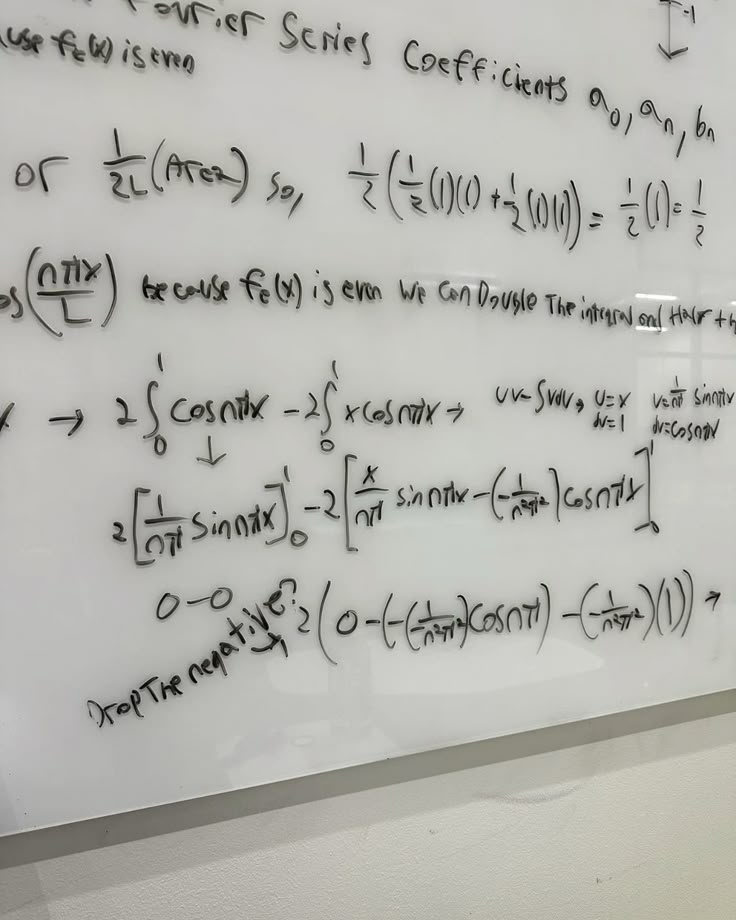 Fourier Series Coefficients a₀, aₙ, bₙ
-1
use fₑ(x) is even
or 1/2L (Area) so, 1/2 (1/2(1)(1) + 1/2(1)(1)) = 1/2(1) = 1/2
os(nπx/L) because fₑ(x) is even we can Double The integral and Half th
x → 2∫₀¹ cosnπx - 2∫₀¹ xcosnπx → uv-∫vdu → u=x v=1/nπ sinnπx
du=1 dv=cosnπx
↓
2[1/nπ sinnπx]₀¹ - 2[x/nπ sinnπx - (-1/n²π²)cosnπx]₀¹
0-0 2(0-(-(1/-n²π²)cosnπ) - (-1/n²π²)(1)) →
Drop The negative? →